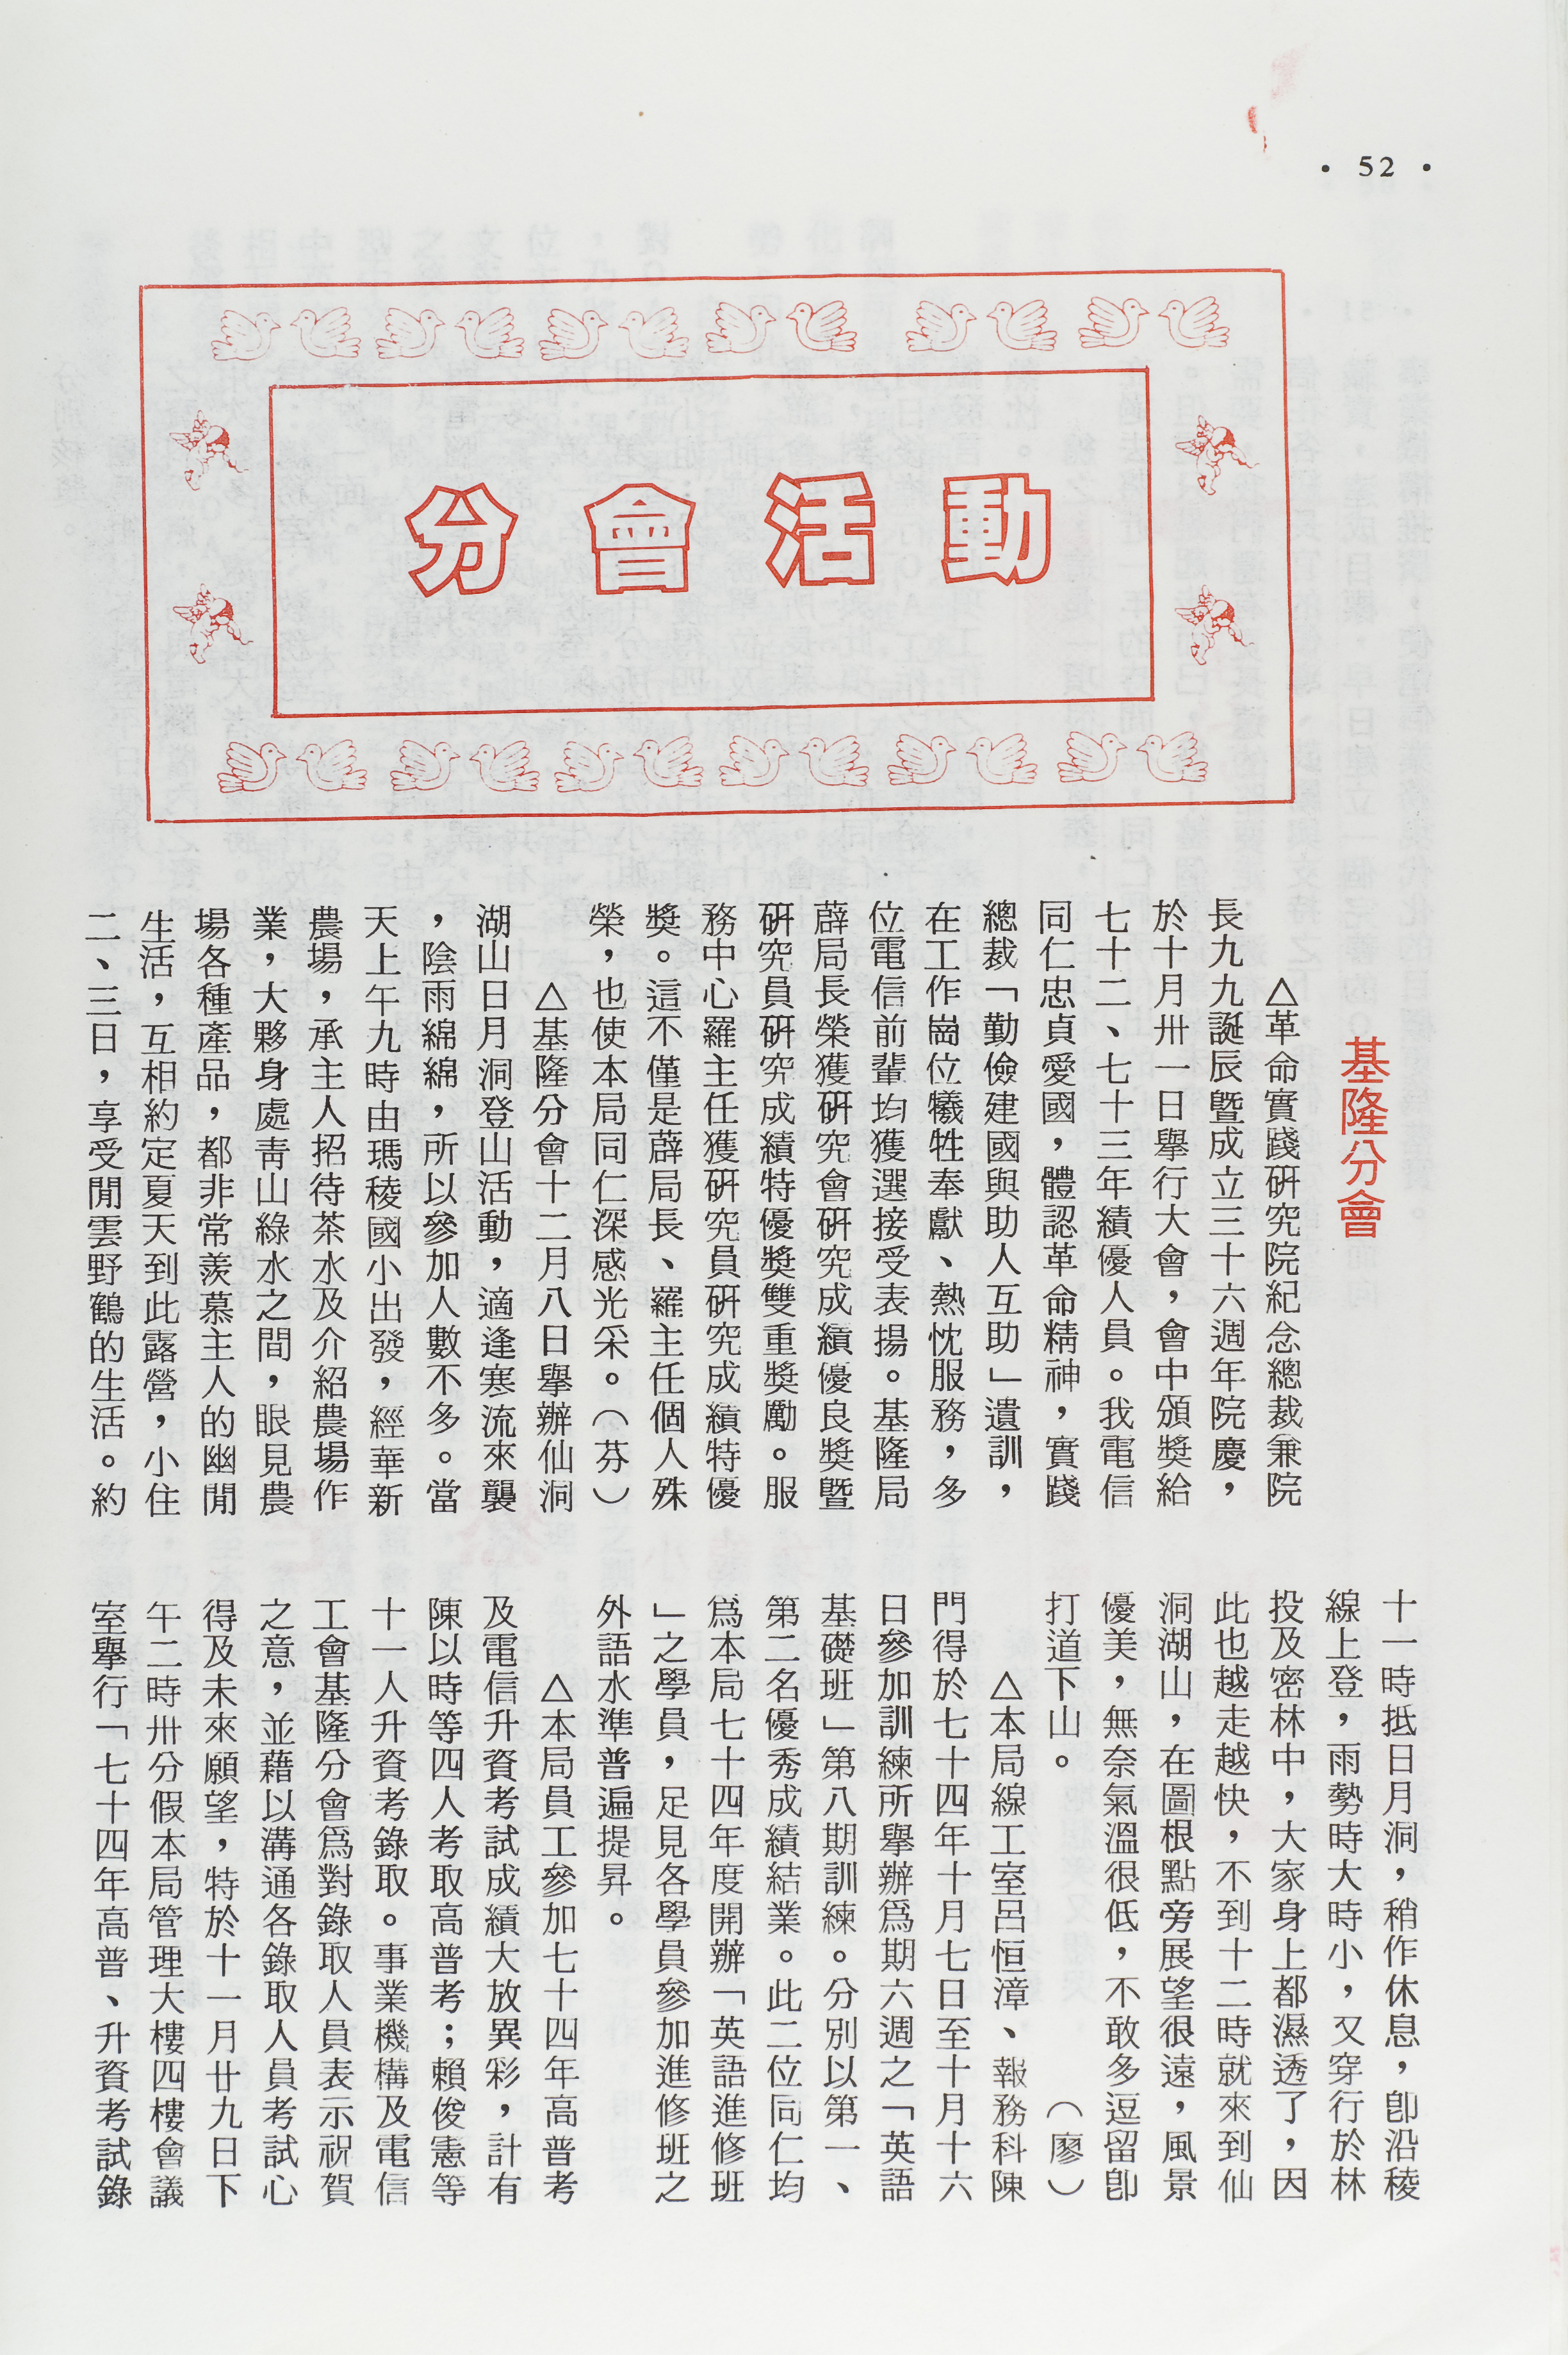 • 52 •
分會活動
基隆分會
△革命實踐研究院紀念總裁兼院
長九九誕辰暨成立三十六週年院慶，
於十月卅一日舉行大會，會中頒獎給
七十二、七十三年績優人員。我電信
同仁忠貞愛國，體認革命精神，實踐
總裁「勤儉建國與助人互助」遺訓，
在工作崗位犧牲奉獻、熱忱服務，多
位電信前輩均獲選接受表揚。基隆局
薜局長榮獲研究會研究成績優良獎暨
研究員研究成績特優獎雙重獎勵。服
務中心羅主任獲研究員研究成績特優
獎。這不僅是薜局長、羅主任個人殊
榮，也使本局同仁深感光采。（芬）
△基隆分會十二月八日舉辦仙洞
湖山日月洞登山活動，適逢寒流來襲
，陰雨綿綿，所以參加人數不多。當
天上午九時由瑪稜國小出發，經華新
農場，承主人招待茶水及介紹農場作
業，大夥身處靑山綠水之間，眼見農
場各種產品，都非常羨慕主人的幽閒
生活，互相約定夏天到此露營，小住
二、三日，享受閒雲野鶴的生活。約
十一時抵日月洞，稍作休息，卽沿稜
線上登，雨勢時大時小，又穿行於林
投及密林中，大家身上都濕透了，因
此也越走越快，不到十二時就來到仙
洞湖山，在圖根點旁展望很遠，風景
優美，無奈氣溫很低，不敢多逗留卽
打道下山。（廖）
△本局線工室呂恒漳、報務科陳
門得於七十四年十月七日至十月十六
日參加訓練所舉辦爲期六週之「英語
基礎班」第八期訓練。分別以第一、
第二名優秀成績結業。此二位同仁均
爲本局七十四年度開辦「英語進修班
」之學員，足見各學員參加進修班之
外語水準普遍提昇。
△本局員工參加七十四年高普考
及電信升資考試成績大放異彩，計有
陳以時等四人考取高普考；賴俊憲等
十一人升資考錄取。事業機構及電信
工會基隆分會爲對錄取人員表示祝賀
之意，並藉以溝通各錄取人員考試心
得及未來願望，特於十一月廿九日下
午二時卅分假本局管理大樓四樓會議
室舉行「七十四年高普、升資考試錄